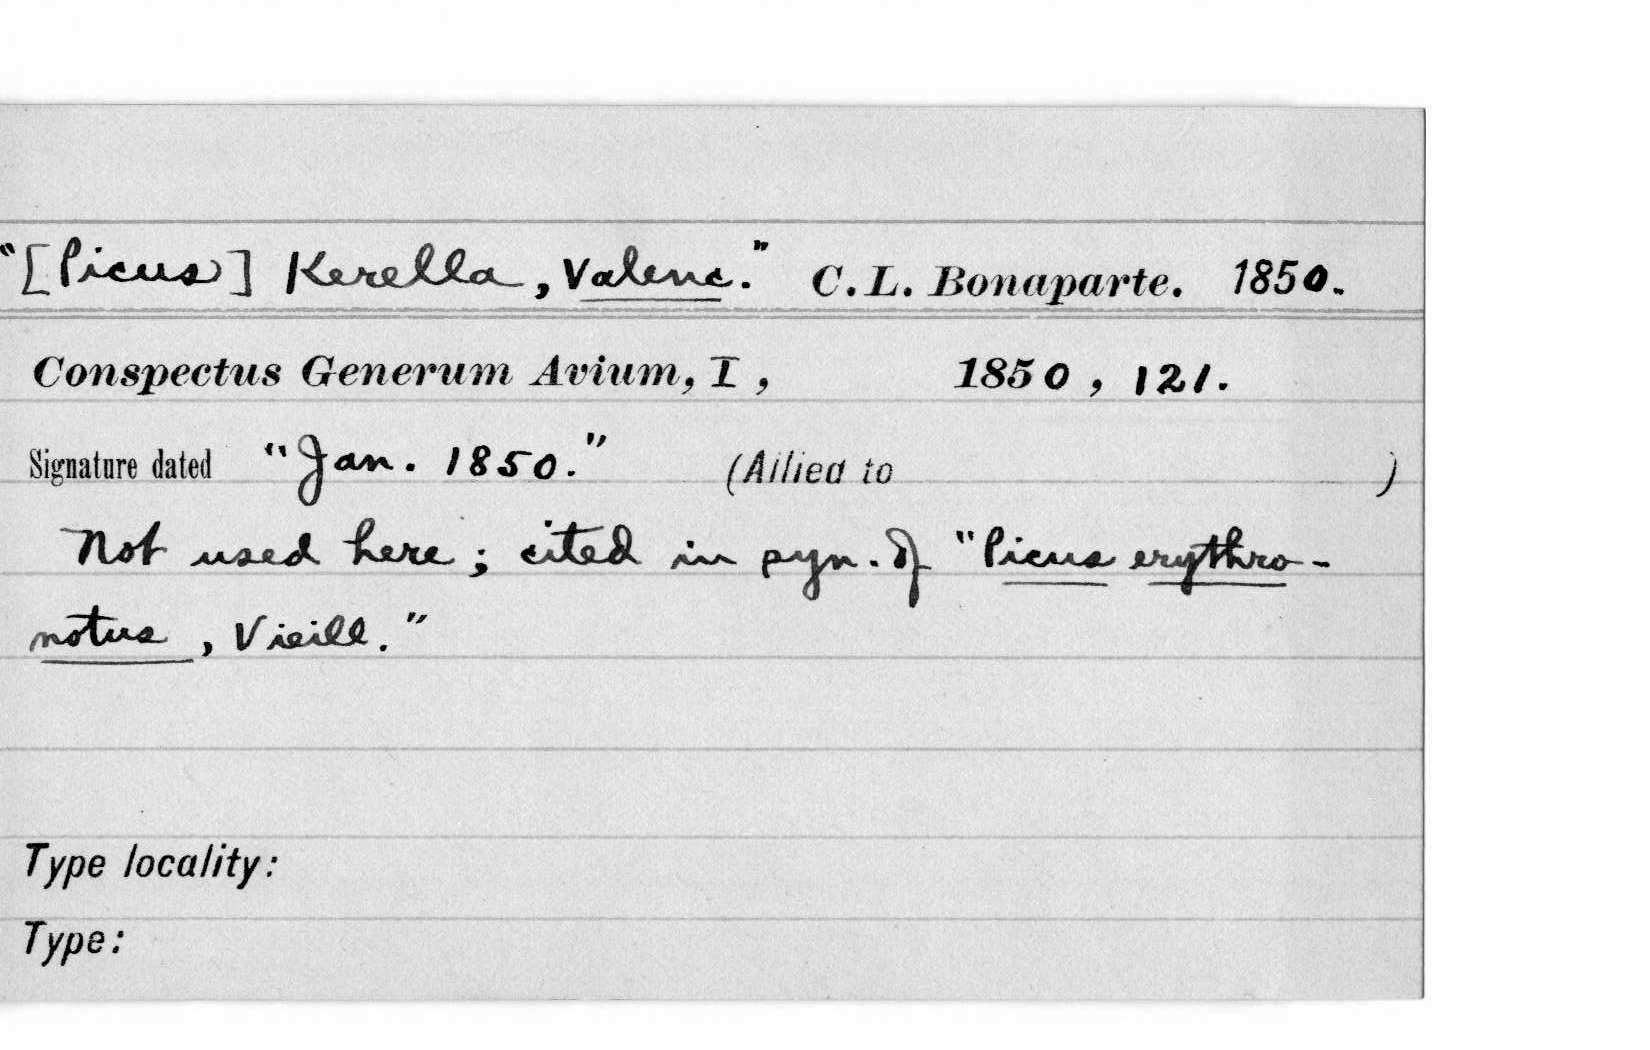 "[Picus] Kerella, Valenc." C. L. Bonaparte. 1850.
Conspectus Generum Avium, I, 1850, 121.
Signature dated "Jan. 1850." (Allied to )
Not used here; cited in syn. of "Picus erythro-
notus, Vieill."
Type locality:
Type: